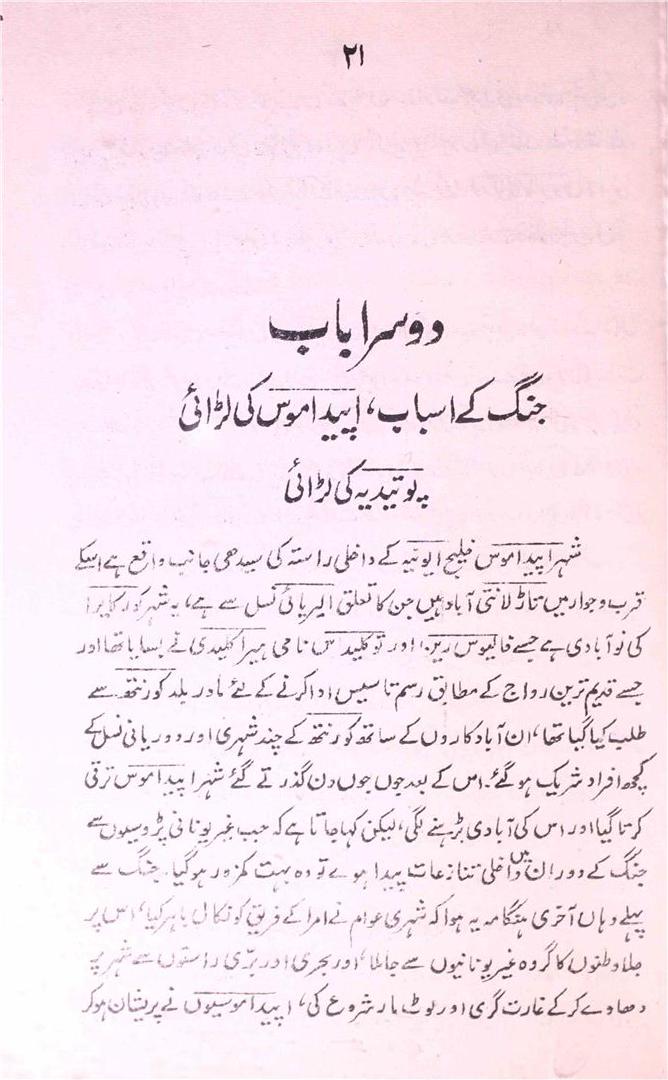 ۲۱
دوسرا باب
جنگ کے اسباب، اپیداموس کی لڑائی
پوتیدیہ کی لڑائی
شہر اپیداموس خلیج ایونیہ کے داخلی راستہ کی سیدھی جانب واقع ہے اسکے
قرب وجوار میں تاڑلانتی آباد ہیں جن کا تعلق الیریائی نسل سے ہے، یہ شہر کورکایرا
کی نوآبادی ہے جسے فالیوس بن اور توکلیدس نامی ہیراکلیدی نے بسایا تھا اور
جسے قدیم ترین رواج کے مطابق رسم تاسیس ادا کرنے کے لئے مادر بلد کورنتھ سے
طلب کیا گیا تھا، ان آبادکاروں کے ساتھ کورنتھ کے چند شہری اور دوریانی نسل کے
کچھ افراد شریک ہو گئے۔ اس کے بعد جوں جوں دن گذرتے گئے شہر اپیداموس ترقی
کرتا گیا اور اس کی آبادی بڑہنے لگی، لیکن کہا جاتا ہے کہ جب غیر یونانی پڑوسیوں سے
جنگ کے دوران میں داخلی تنازعات پیدا ہوے تو وہ بہت کمزور ہو گیا۔ جنگ سے
پہلے وہاں آخری ہنگامہ یہ ہوا کہ شہری عوام نے امرا کے فریق کو نکال باہر کیا، اس پر
جلا وطنوں کا گروہ غیر یونانیوں سے جا ملا، اور بحری اور برّی راستوں سے شہر پر
دھاوے کرکے غارت گری اور لوٹ مار شروع کی، اپیداموسیوں نے پریشان ہو کر